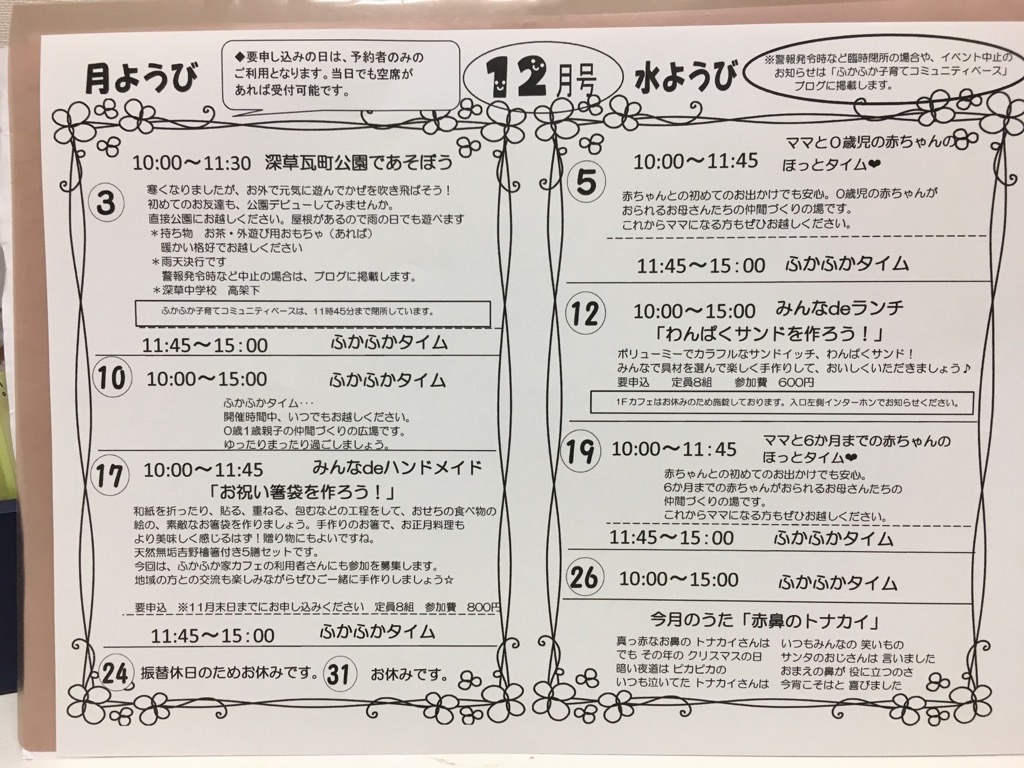 月ようび
◆要申し込みの日は、予約者のみの
ご利用となります。当日でも空席が
あれば受付可能です。
12月号
水ようび
※警報発令時など臨時閉所の場合や、イベント中止の
お知らせは「ふかふか子育てコミュニティベース」
ブログに掲載します。
3
10:00～11:30 深草瓦町公園であそぼう
寒くなりましたが、お外で元気に遊んでかぜを吹き飛ばそう！
初めてのお友達も、公園デビューしてみませんか。
直接公園にお越しください。屋根があるので雨の日でも遊べます
＊持ち物 お茶・外遊び用おもちゃ（あれば）
暖かい格好でお越しください
＊雨天決行です
警報発令時など中止の場合は、ブログに掲載します。
＊深草中学校 高架下
ふかふか子育てコミュニティベースは、11時45分まで閉所しています。
11:45～15:00 ふかふかタイム
10
10:00～15:00 ふかふかタイム
ふかふかタイム・・・
開催時間中、いつでもお越しください。
0歳1歳親子の仲間づくりの広場です。
ゆったりまったり過ごしましょう。
17
10:00～11:45 みんなdeハンドメイド
「お祝い箸袋を作ろう！」
和紙を折ったり、貼る、重ねる、包むなどの工程をして、おせちの食べ物の
絵の、素敵なお箸袋を作りましょう。手作りのお箸で、お正月料理も
より美味しく感じるはず！贈り物にもよいですね。
天然無垢吉野檜箸付き5膳セットです。
今回は、ふかふか家カフェの利用者さんにも参加を募集します。
地域の方との交流も楽しみながらぜひご一緒に手作りしましょう☆
要申込 ※11月末日までにお申し込みください 定員8組 参加費 800円
11:45～15:00 ふかふかタイム
24 振替休日のためお休みです。 31 お休みです。
5
10:00～11:45 ママと0歳児の赤ちゃんの
ほっとタイム❤
赤ちゃんとの初めてのお出かけでも安心。0歳児の赤ちゃんが
おられるお母さんたちの仲間づくりの場です。
これからママになる方もぜひお越しください。
11:45～15:00 ふかふかタイム
12
10:00～15:00 みんなdeランチ
「わんぱくサンドを作ろう！」
ボリューミーでカラフルなサンドイッチ、わんぱくサンド！
みんなで具材を選んで楽しく手作りして、おいしくいただきましょう♪
要申込 定員8組 参加費 600円
1Fカフェはお休みのため施錠しております。入口左側インターホンでお知らせください。
19
10:00～11:45 ママと6か月までの赤ちゃんの
ほっとタイム❤
赤ちゃんとの初めてのお出かけでも安心。
6か月までの赤ちゃんがおられるお母さんたちの
仲間づくりの場です。
これからママになる方もぜひお越しください。
11:45～15:00 ふかふかタイム
26
10:00～15:00 ふかふかタイム
今月のうた「赤鼻のトナカイ」
真っ赤なお鼻の トナカイさんは
でも その年の クリスマスの日
暗い夜道は ピカピカの
いつも泣いてた トナカイさんは
いつもみんなの 笑いもの
サンタのおじさんは 言いました
おまえの鼻が 役に立つのさ
今宵こそはと 喜びました